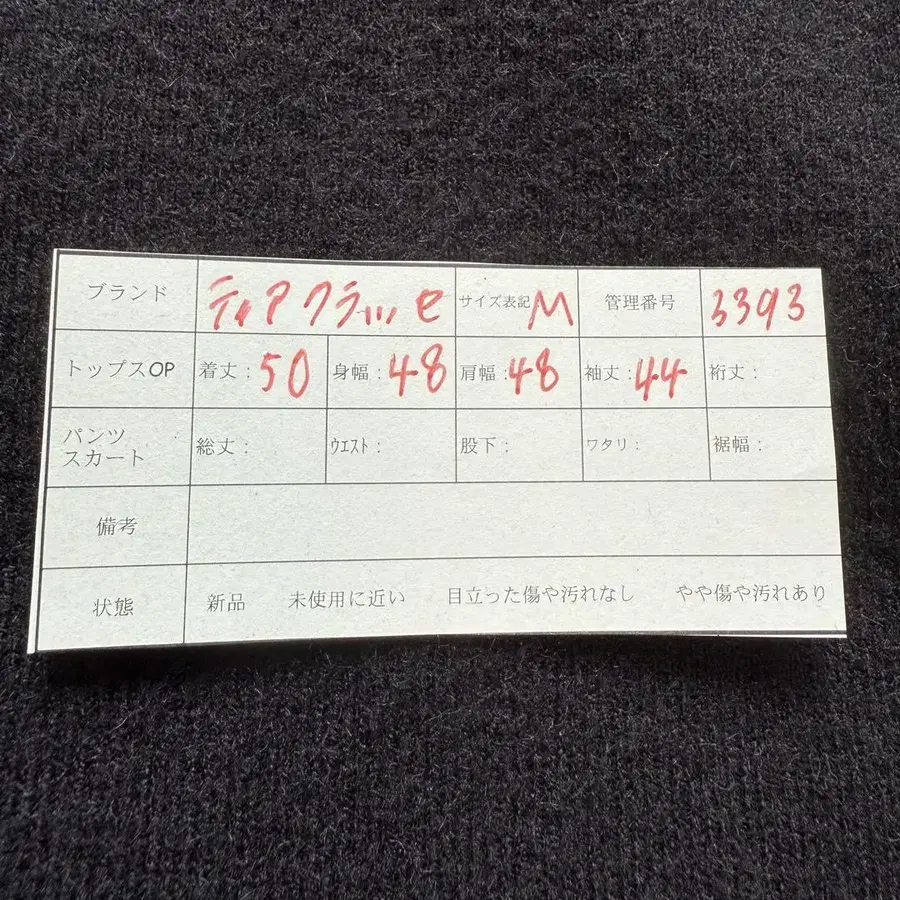 ブランド ティアクラッセ サイズ表記 M 管理番号 3393
トップスOP 着丈：50 身幅：48 肩幅：48 袖丈：44 裄丈：
パンツ
スカート 総丈： ウエスト： 股下： ワタリ： 裾幅：
備考
状態 新品 未使用に近い 目立った傷や汚れなし やや傷や汚れあり